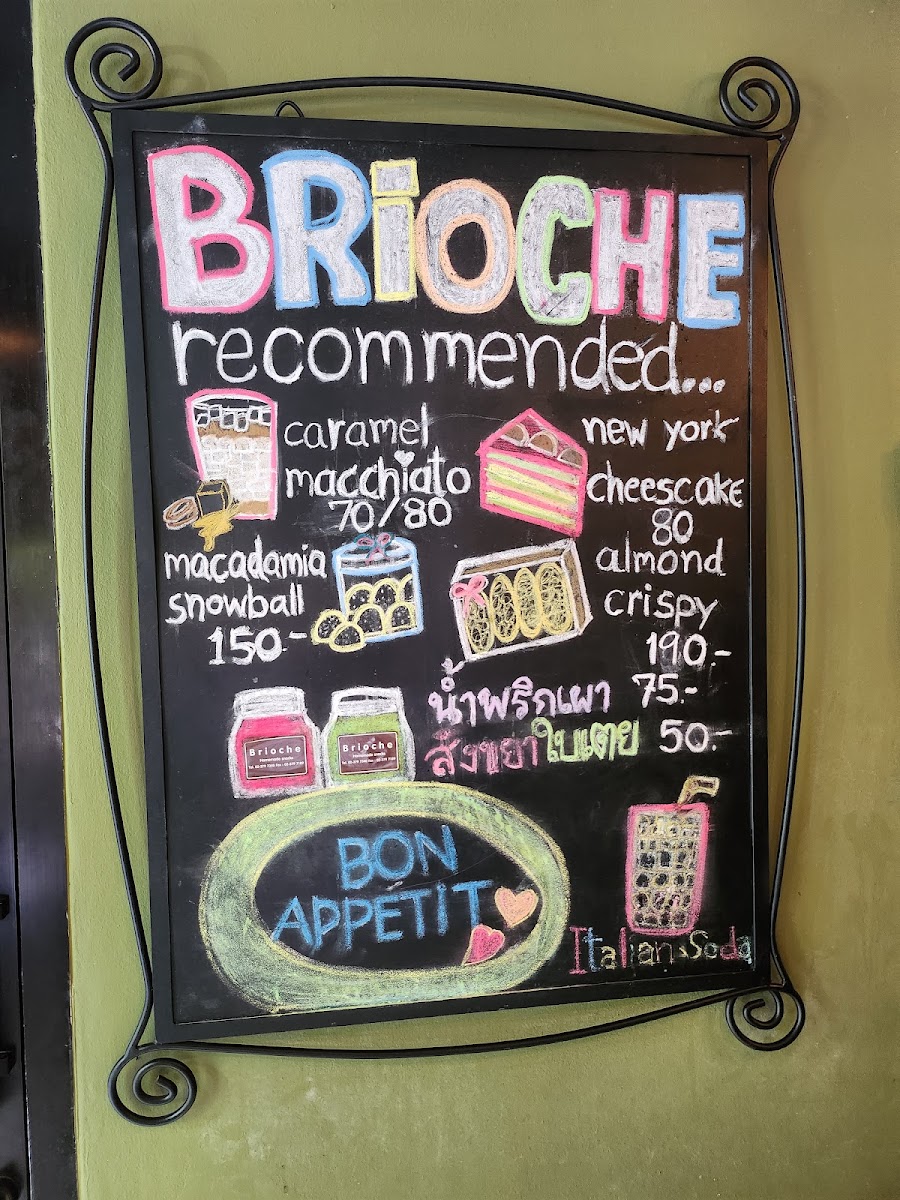 BRiOCHE
recommended...
caramel
macchiato
70/80
new york
cheescake
80
macadamia
snowball
150.-
almond
crispy
190.-
น้ำพริกเผา 75.-
สังขยาใบเตย 50.-
Brioche
Homemade snacks
Brioche
Homemade snacks
BON
APPETIT
Italian Soda